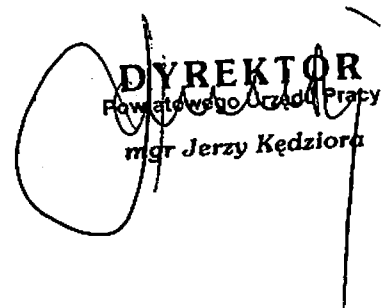 DYREKTOR
Powiatowego Urzędu Pracy
mgr Jerzy Kędziora